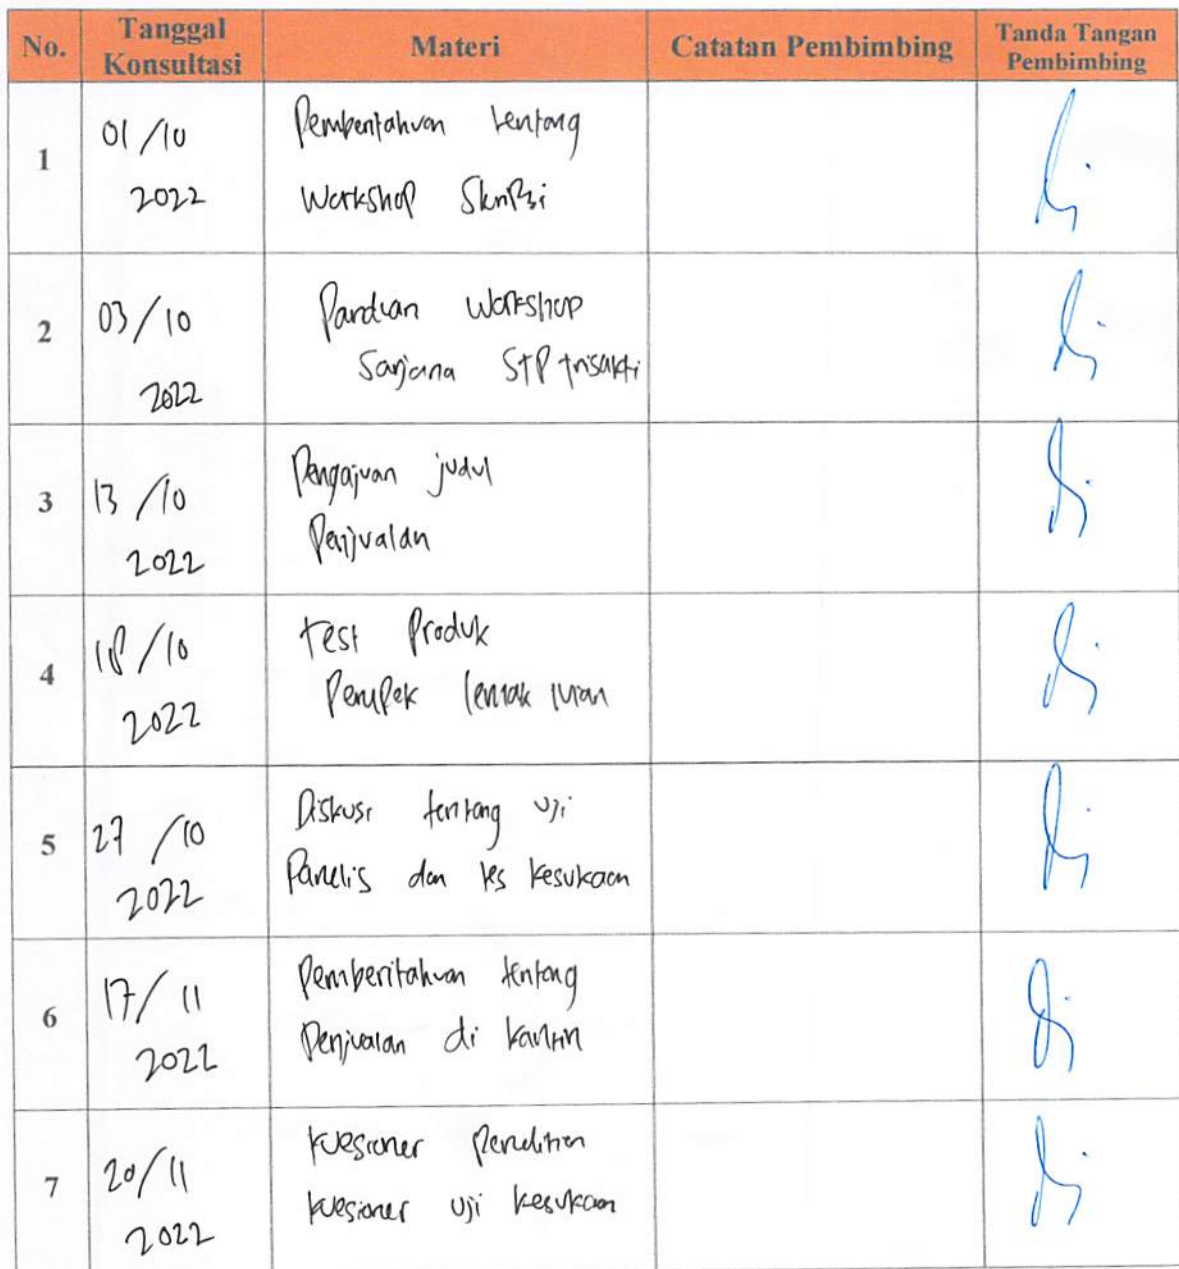 No. Tanggal Konsultasi Materi Catatan Pembimbing Tanda Tangan Pembimbing
1 01/10 2022 Pemberitahuan tentang
Workshop Skripsi
2 03/10 2022 Panduan Workshop
Sarjana STP trisakti
3 13/10 2022 Pengajuan judul
Penjualan
4 18/10 2022 test Produk
Pempek lemak
5 27/10 2022 Diskusi tentang uji
Panelis dan tes kesukaan
6 17/11 2022 Pemberitahuan tentang
Penjualan di kantin
7 20/11 2022 kuesioner penelitian
kuesioner uji kesukaan